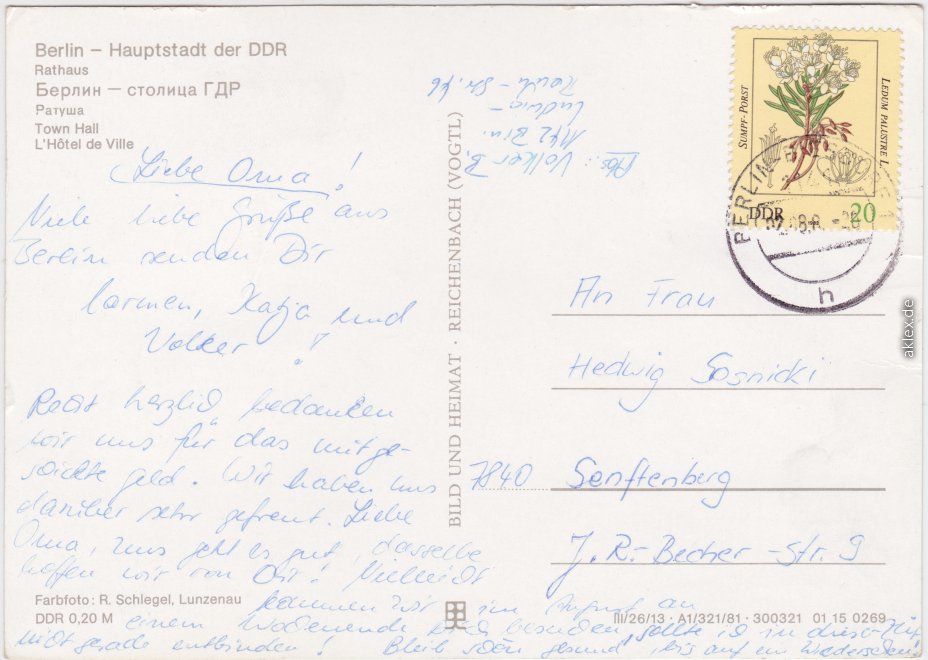 Berlin – Hauptstadt der DDR
Rathaus
Берлин – столица ГДР
Ратуша
Town Hall
L'Hôtel de Ville
Liebe Oma!
Viele liebe Grüße aus
Berlin senden Dir
Carmen, Katja und
Volker!
Recht herzlich bedanken
wir uns für das mitge-
schickte Geld. Wir haben uns
darüber sehr gefreut. Liebe
Oma, uns geht es gut, dasselbe
hoffen wir von Dir! Vielleicht
kommen wir im August an
einem Wochenende Dich besuchen, sollte ich in dieser
nicht gerade entbinden! Bleib schön gesund, bis auf ein Wiedersehen!
Farbfoto: R. Schlegel, Lunzenau
DDR 0,20 M
BILD UND HEIMAT · REICHENBACH (VOGTL)
Abs.: Volker B.
1142 Bln.
Ludwig-
SUMPF-PORST
LEDUM PALUSTRE L.
DDR
20
BERLIN
h
An Frau
Hedwig Sosnicki
7840 Senftenberg
J.-R.-Becher-Str. 9
III/26/13 · A1/321/81 · 300321 01 15 0269
aklex.de